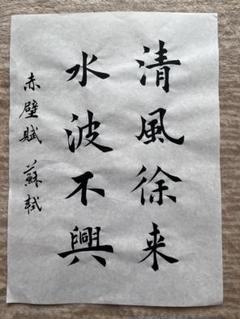 清風徐来
水波不興
赤壁賦 蘇軾